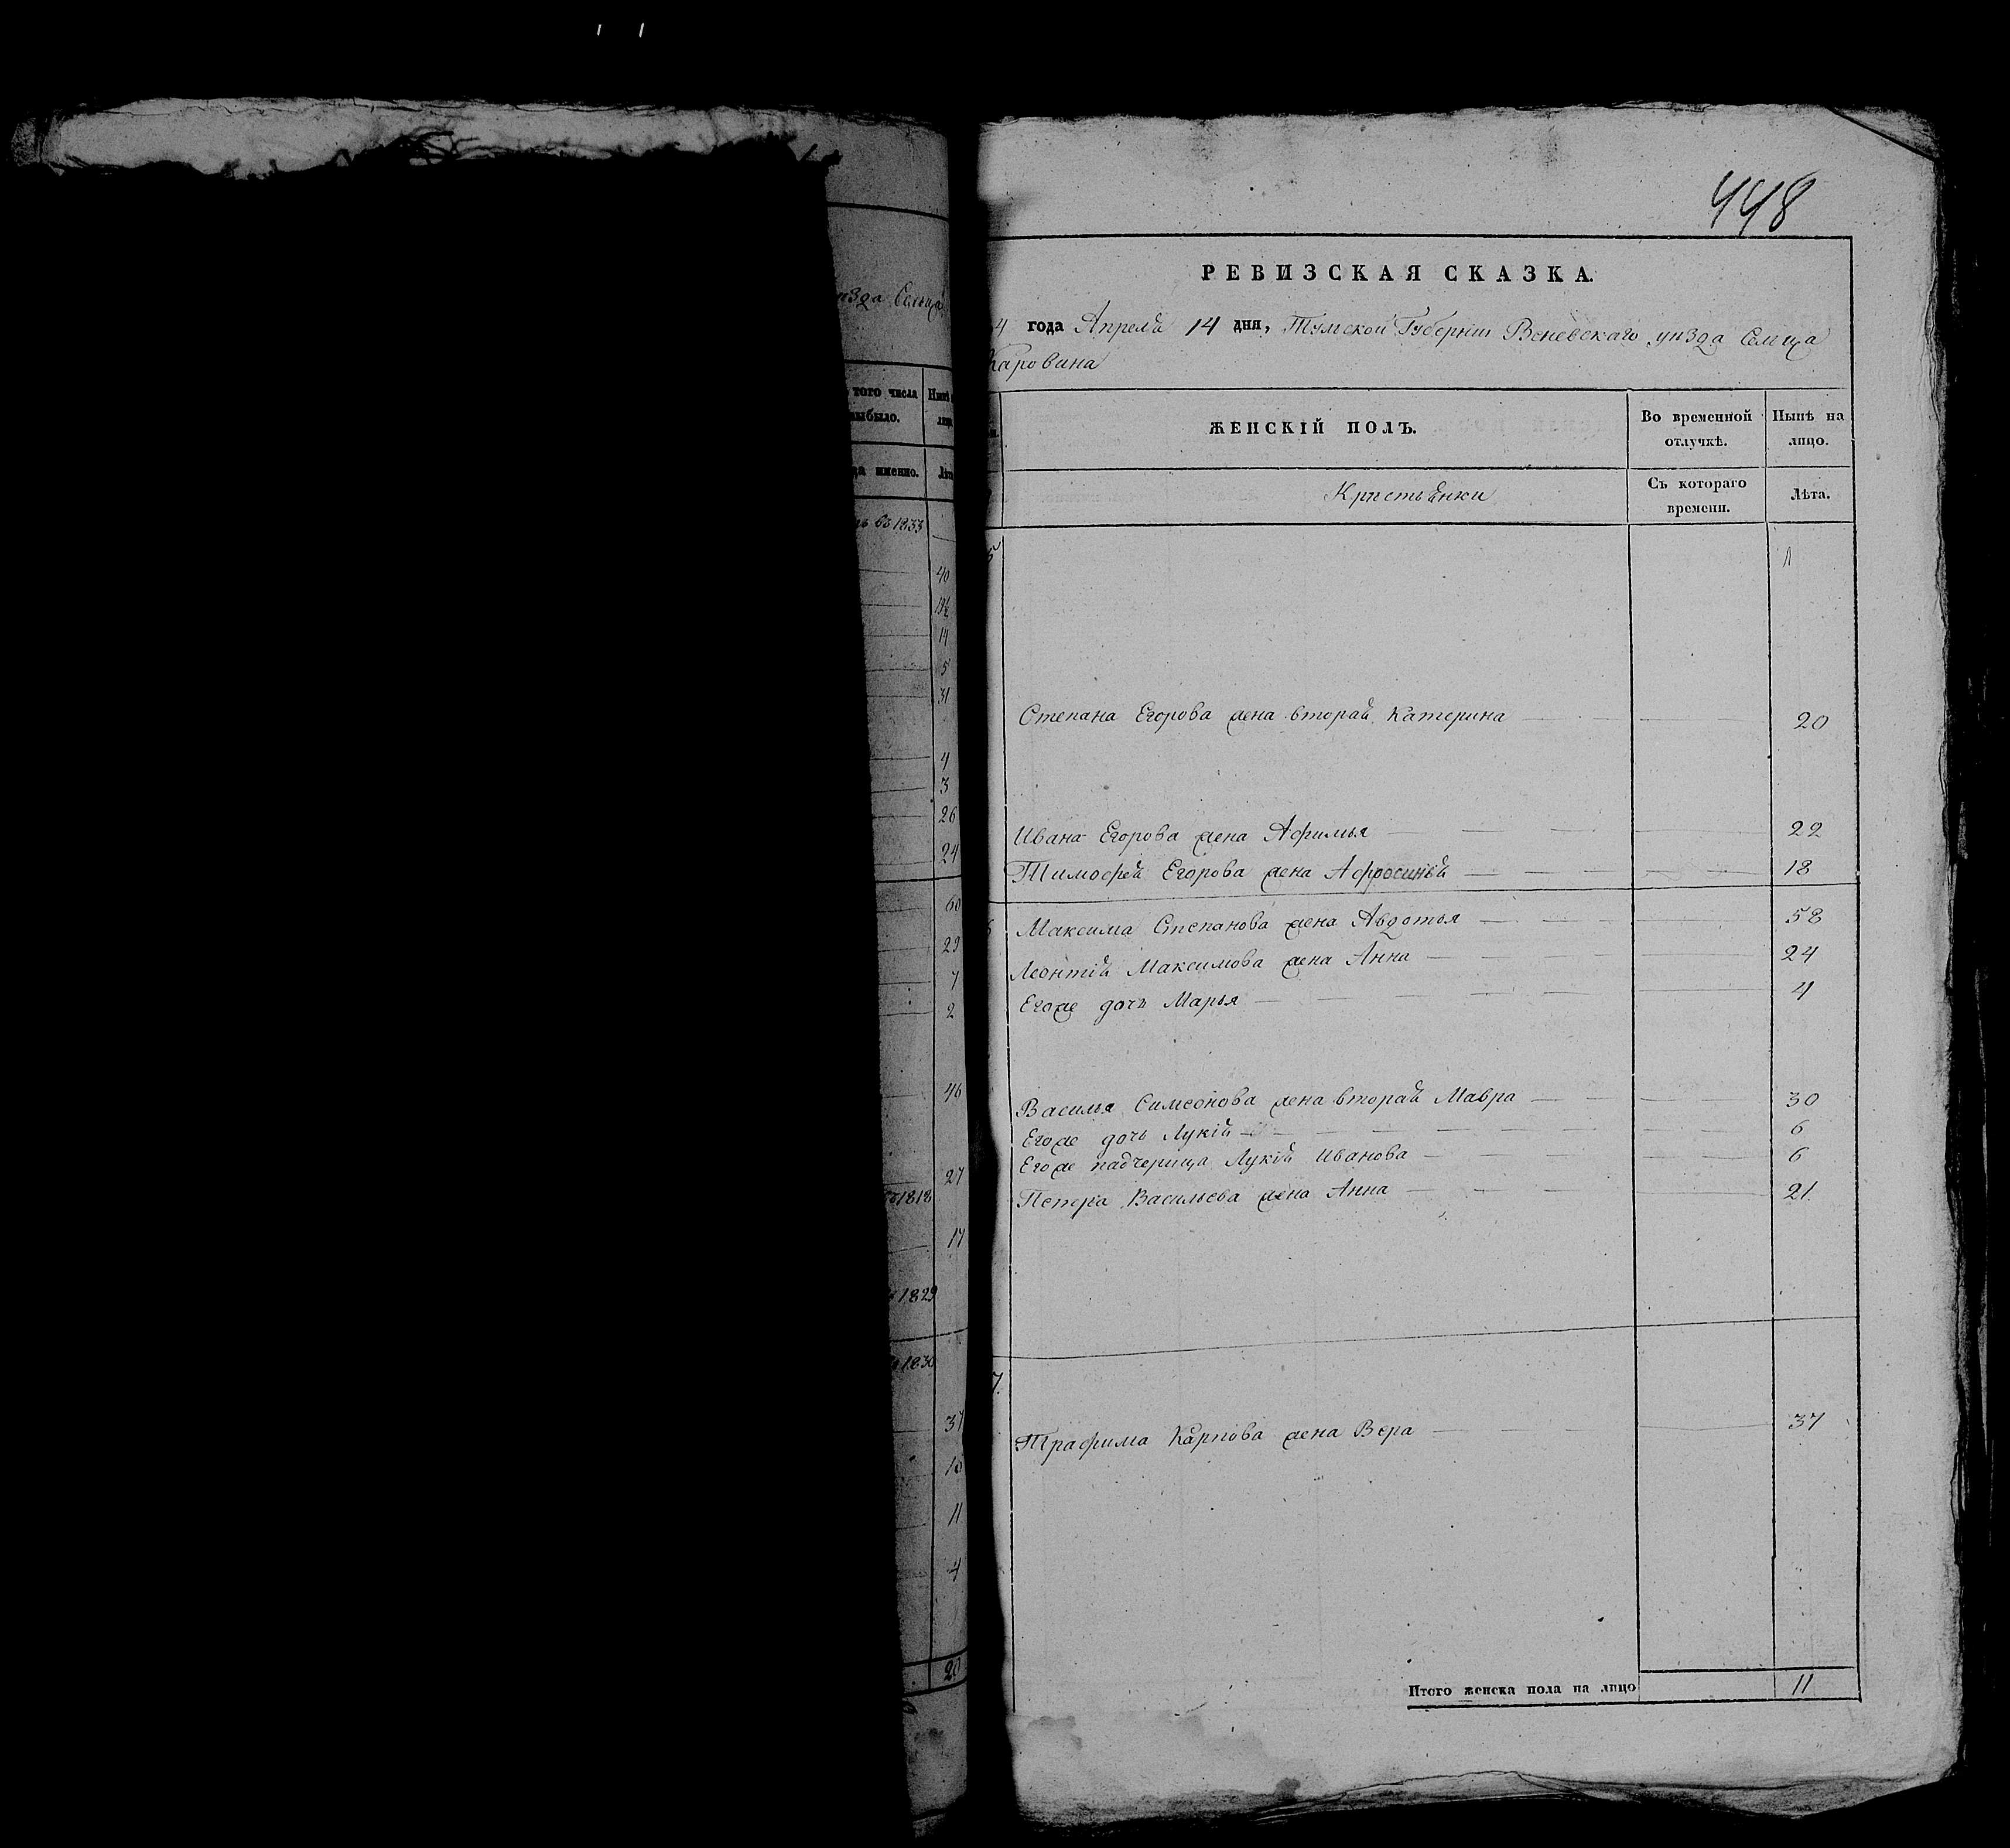 нзда Сельца
того числа
выбыло.
Нынѣ
лицо
да именно.
Лѣта
въ 1833
40
13½
14
5
31
4
3
26
24
60
29
7
2
46
27
1818
17
1829
1830
37
16
11
4
20
448
РЕВИЗСКАЯ СКАЗКА.
4 года Апреля 14 дня, Тульской Губерніи Веневскаго уизда Сельца
Каровина
ЖЕНСКІЙ ПОЛЪ.
Во временной
отлучкѣ.
Нынѣ на
лицо.
Кристьянки
Съ котораго
времени.
Лѣта.
5
Степана Егорова жена вторая Катерина 20
Ивана Егорова жена Афимья 22
Тимофея Егорова жена Афросинья 18
6 Максима Степанова жена Авдотья 58
Леонтія Максимова жена Анна 24
Егоже дочь Марья 4
Василья Симеонова жена вторая Мавра 30
Егоже дочь Лукія 6
Егоже падчерица Лукія Иванова 6
Петра Васильева жена Анна 21
7.
Трафима Карпова жена Вера 37
Итого женска пола на лицо 11